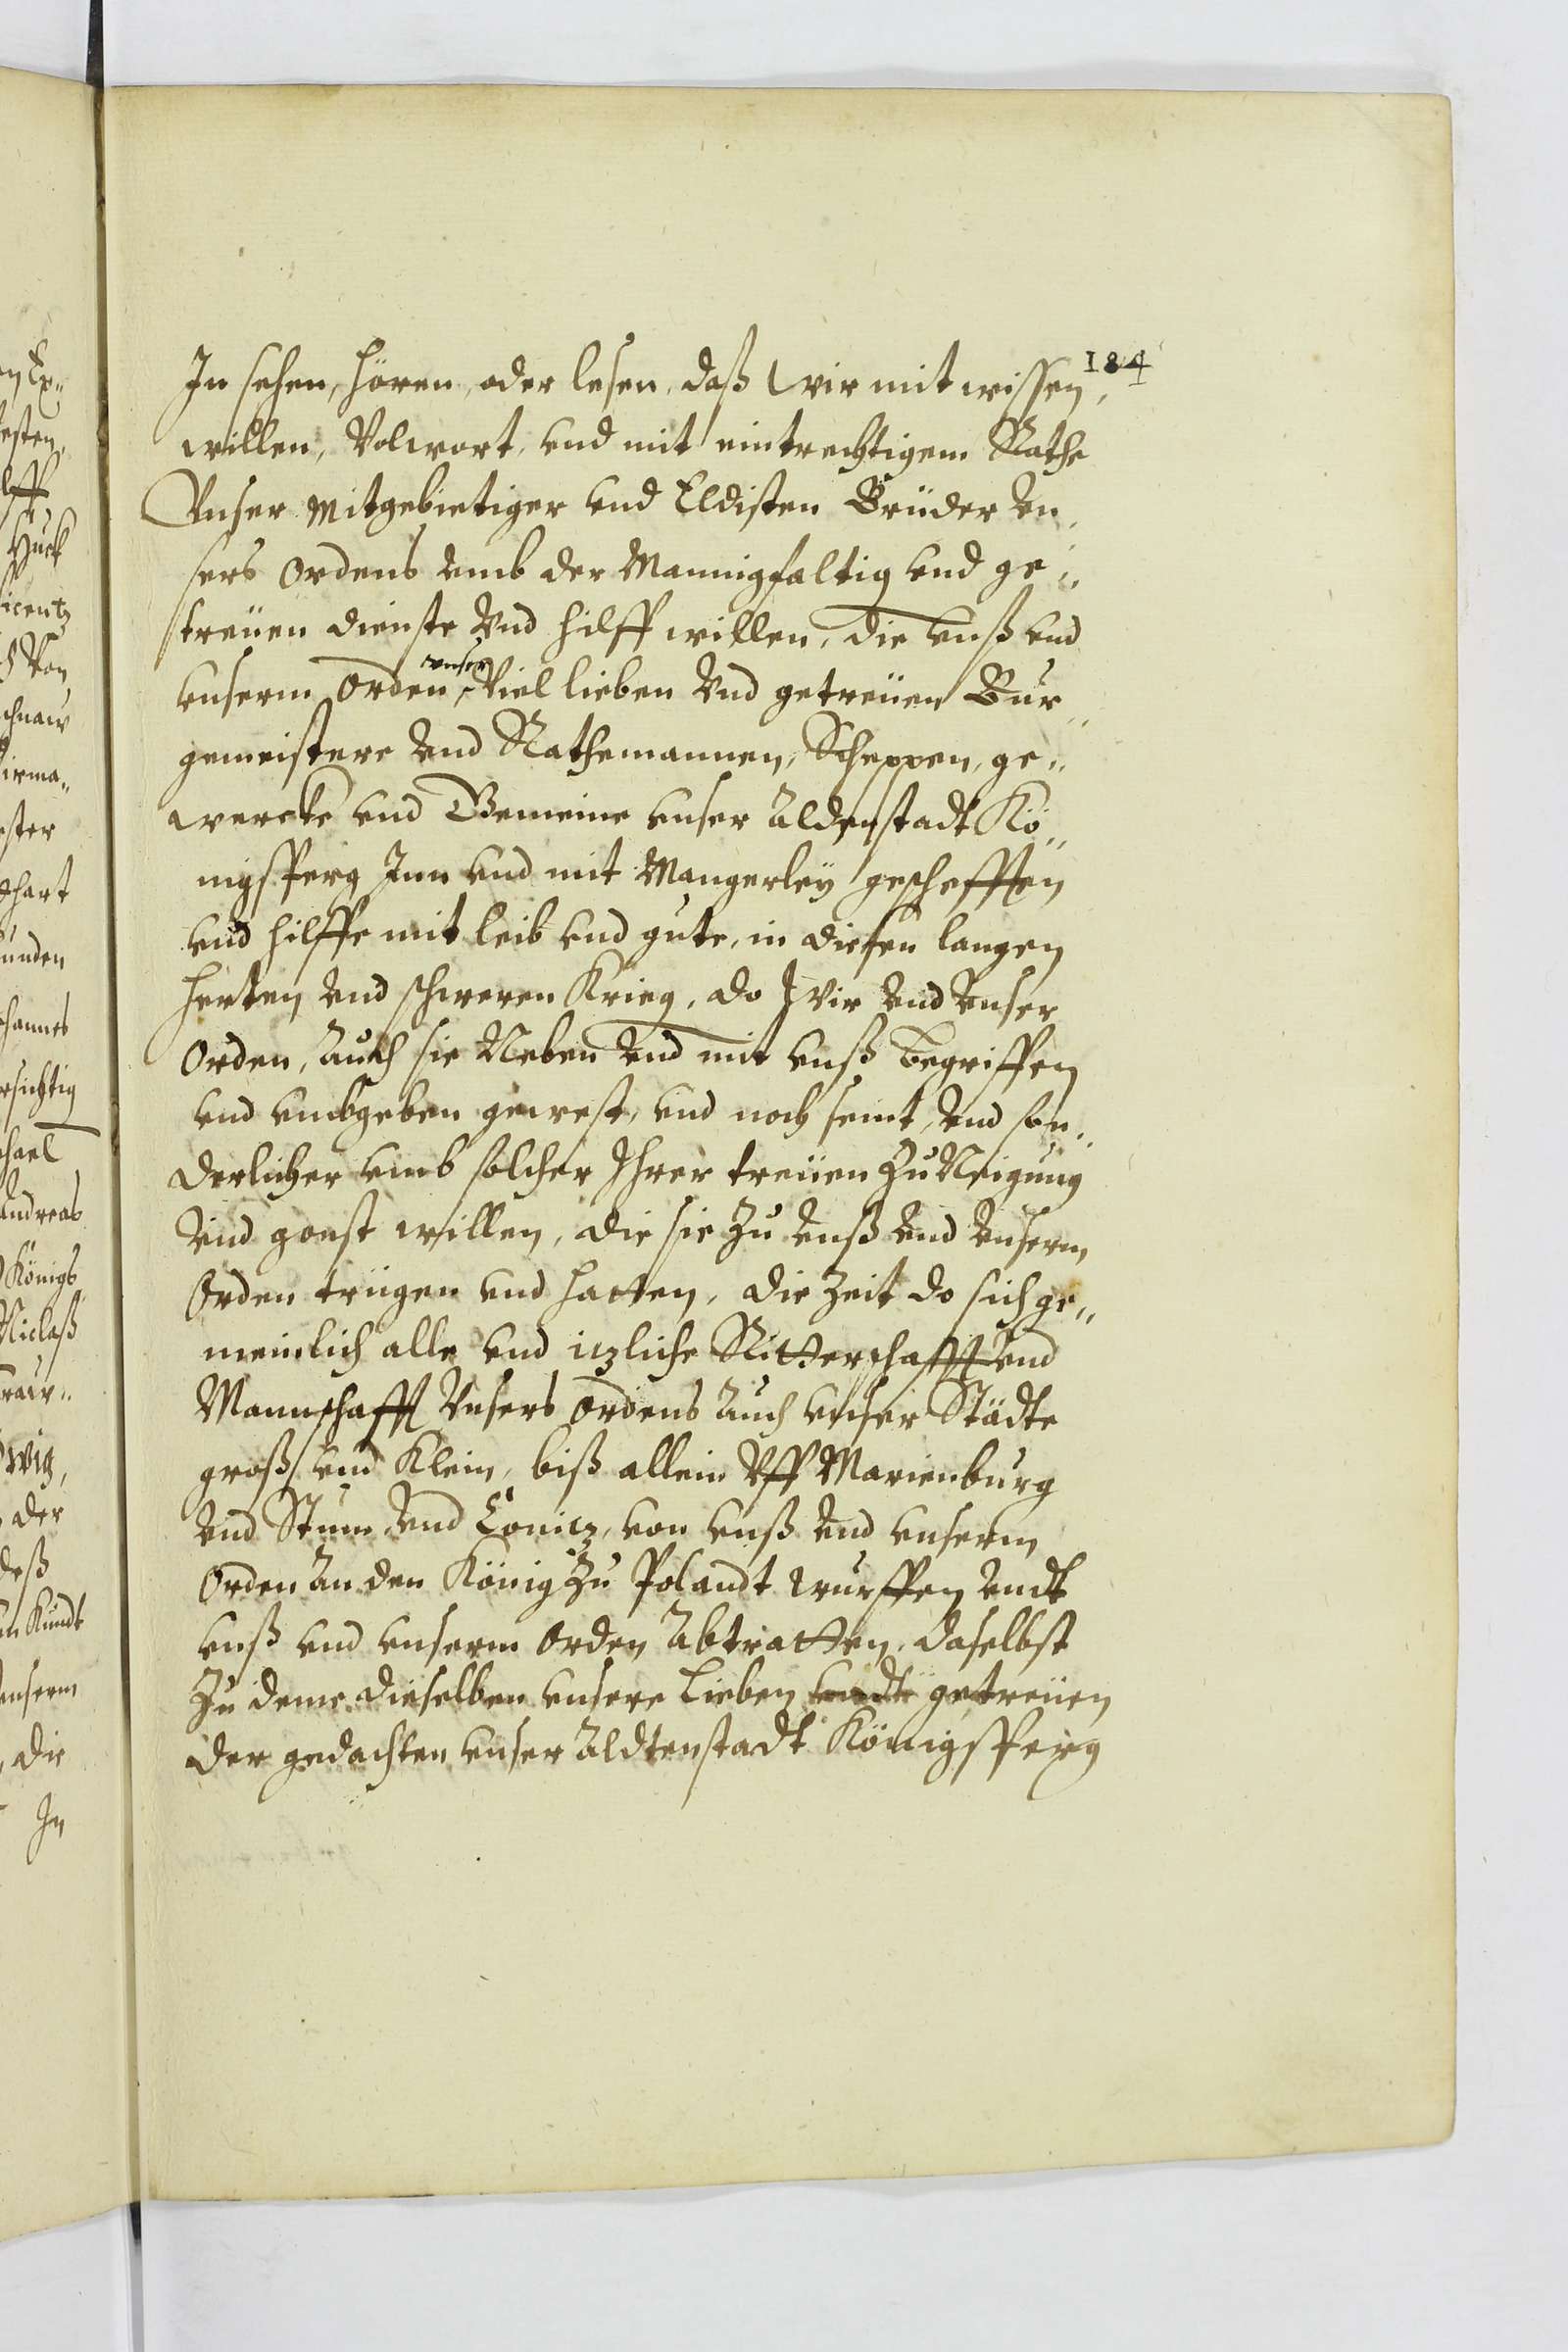 184
In sehen, hören, oder lesen, daß Wir mit wissen,
willen, Volwort, vnd mit eintrechtigem Rathe
Vnser Mitgebietiger vnd Eldisten Brüder vn
sers Ordens vmb der Mannigfaltig vnd ge„
treüen dienste Vnd hilff willen, die vnß vnd
vnserm Orden, vnser Viel lieben Vnd getreüen Bur„
gemeistere vnd Rathemannen, Scheppen, ge„
wercke vnd Gemeine vnser Aldenstadt Kö„
nigsperg Inn vnd mit Mangerley geschefften
vnd hilffe mit leib vnd gute, in diesen langen
herten vnd schweren Krieg, do Wir vnd Vnser
Orden, Auch sie Neben vnd mit vnß begriffen
vnd vmbgeben gewest, vnd noch seint, vnd son„
derlicher vmb solcher Ihrer treüen Zu Neigung
vnd gonst willen, die sie Zu vnß vnd vnserm
Orden trügen vnd hatten, die Zeit do sich ge„
meinlich alle vnd iczliche Ritterschafft vnd
Mannschafft Vnsers Ordens Auch vnser Städte
groß vnd Klein, biß allein Vff Marienburg
vnd Stum vnd Conicz, von vnß vnd vnserm
Orden An den König Zu Polandt wurffen vndt
vnß vnd vnserm Orden Abtratten, daselbst
Zu deme dieselben vnsere Lieben vndt getreüen
der gedachten vnser Aldtenstadt Königsperg